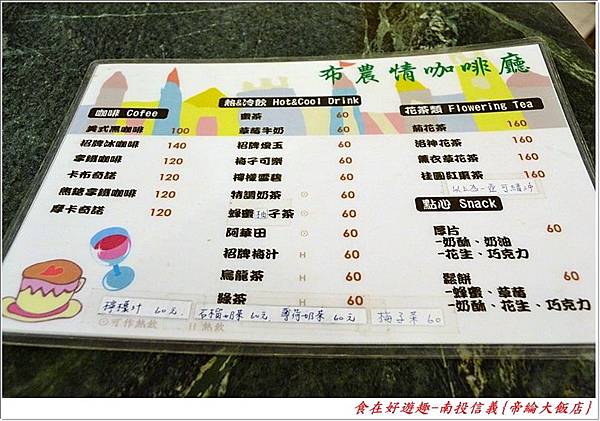 布農情咖啡廳
咖啡 Cofee
美式黑咖啡 100
招牌冰咖啡 140
拿鐵咖啡 120
卡布奇諾 120
焦糖拿鐵咖啡 120
摩卡奇諾 120
熱&冷飲 Hot&Cool Drink
蜜茶 60
草莓牛奶 60
招牌燒玉 60
梅子可樂 60
檸檬雪碧 60
特調奶茶 ⊙ 60
蜂蜜柚子茶 ⊙ 60
阿華田 ⊙ 60
招牌梅汁 H 60
烏龍茶 H 60
綠茶 H 60
花茶類 Flowering Tea
菊花茶 160
洛神花茶 160
薰衣草花茶 160
桂圓紅棗茶 160
以上為一壺可續沖
點心 Snack
厚片 60
-奶酥、奶油
-花生、巧克力
鬆餅 60
-蜂蜜、草莓
-奶酥、花生、巧克力
檸檬汁 60元.
石榴奶茶 60元
薄荷奶茶 60元
梅子茶 60
⊙可作熱飲 H 熱飲
食在好遊趣-南投信義{帝綸大飯店}